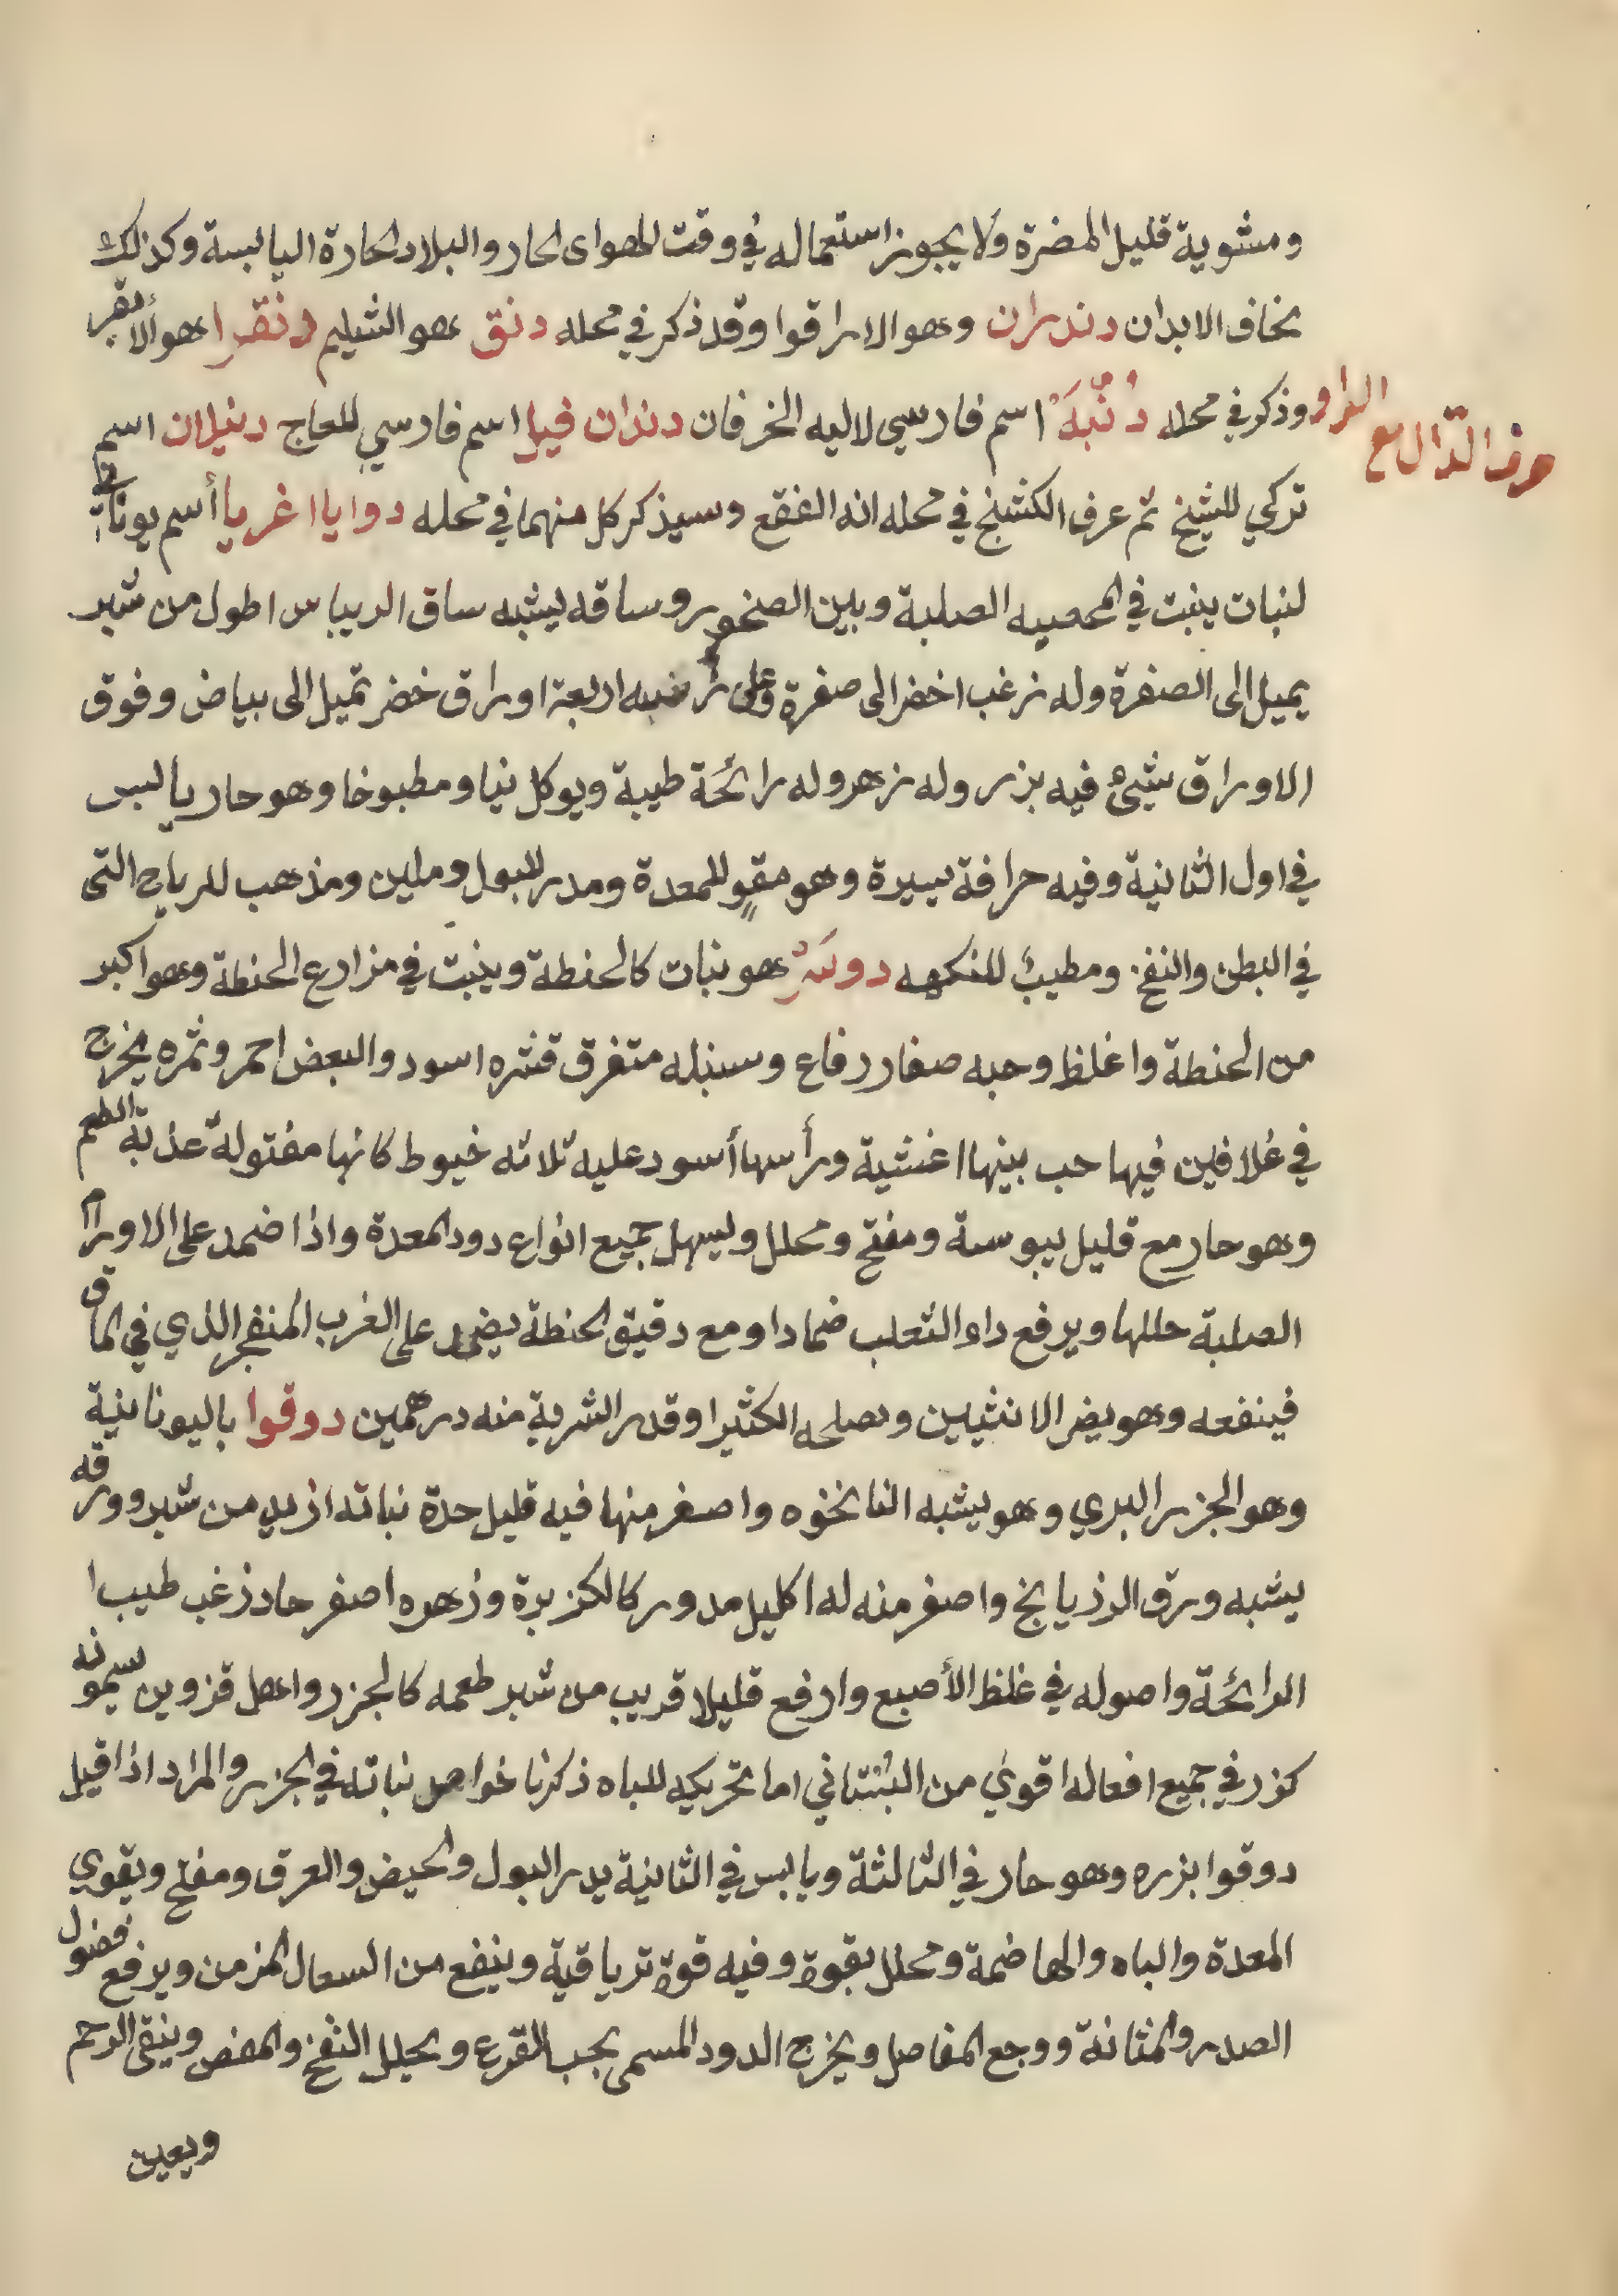 ومشوية قليل المضرة ولا يجوز استعماله في وقت الهواى الحار والبلاد الحارة اليابسة وكذلك
نحاف الابدان دندران وهو الاراقوا وقد ذكر في محله دنق هو الشيلم دنقرا هو الانقر
وذكر في محله دُنْبَه اسم فارسي لاليه الخرفان دندان فيل اسم فارسي للعاج دنيلان اسم
حرف الدّال مع الواو
تركي للشيخ ثم عرف الكشنج في محله انه الفقع وسيذكر كل منهما في محله دوايا اغريا أسم يوناني
لنبات ينبت في المحصيه الصلبة وبين الصخور وساقه يشبه ساق الريباس اطول من شبر
يميل الى الصفرة وله زغب اخضر الى صفرة وعلى اربعة اوراق خضر تميل الى بياض وفوق
الاوراق شيئ فيه بزر وله زهر وله رائحة طيبة ويوكل نيا ومطبوخا وهو حار يابس
في اول الثانية وفيه حرافة يسيرة وهو مقوٍ للمعدة ومدر للبول وملين ومذهب للرياح التى
في البطن والنفخ ومطيب للنكهه دوسَر هو نبات كالحنطة وينبت في مزارع الحنطة وهو اكبر
من الحنطة واغلظ وحبه صغار رفاع وسنبله متفرق قشره اسود والبعض احمر وثمره يخرج
في غلافين فيها حب بينها اغشية ورأسها أسود عليه ثلاثه خيوط كانها مفتولة عذبة الطعم
وهو حار مع قليل يبوسة ومفتح ومحلل ويسهل جميع انواع دود المعدة واذا ضمد على الاورام
الصلبة حللها ويرفع داء الثعلب ضمادا ومع دقيق الحنطة يضمد على الغرب المنفجر الذي في الماق
فينفعه وهو يضر الانثيين ويصلحه الكثيرا وقدر الشربة منه درهمين دوقوا باليونانية
وهو الجزر البري وهو يشبه النانخوه واصغر منها فيه قليل حدة نباته ازيد من شبر وورقه
يشبه ورق الرذيانج واصغر منه له اكليل مدور كالكزبرة وزهره اصفر حاد زغب طيب ا
الرائحة واصوله في غلظ الأصبع وارفع قليلا قريب من شبر طعمه كالجزر واهل قزوين يسمونه
كزر في جميع افعاله اقوي من البُستاني اما تحريكه للباه ذكرنا خواص نباته في الجزر والمراد اذا قيل
دوقوا بزره وهو حار في الثالثة ويابس في الثانية يدر البول والحيض والعرق ومفتح ويقوي
المعدة والباه والهاضمة ومحلل بقوة وفيه قوة ترياقية وينفع من السعال المزمن ويرفع فضول
الصدر والمثانة ووجع المفاصل ويخرج الدود المسمى بحب القرع ويحلل النفخ والمغص وينقى الرحم
ويعين